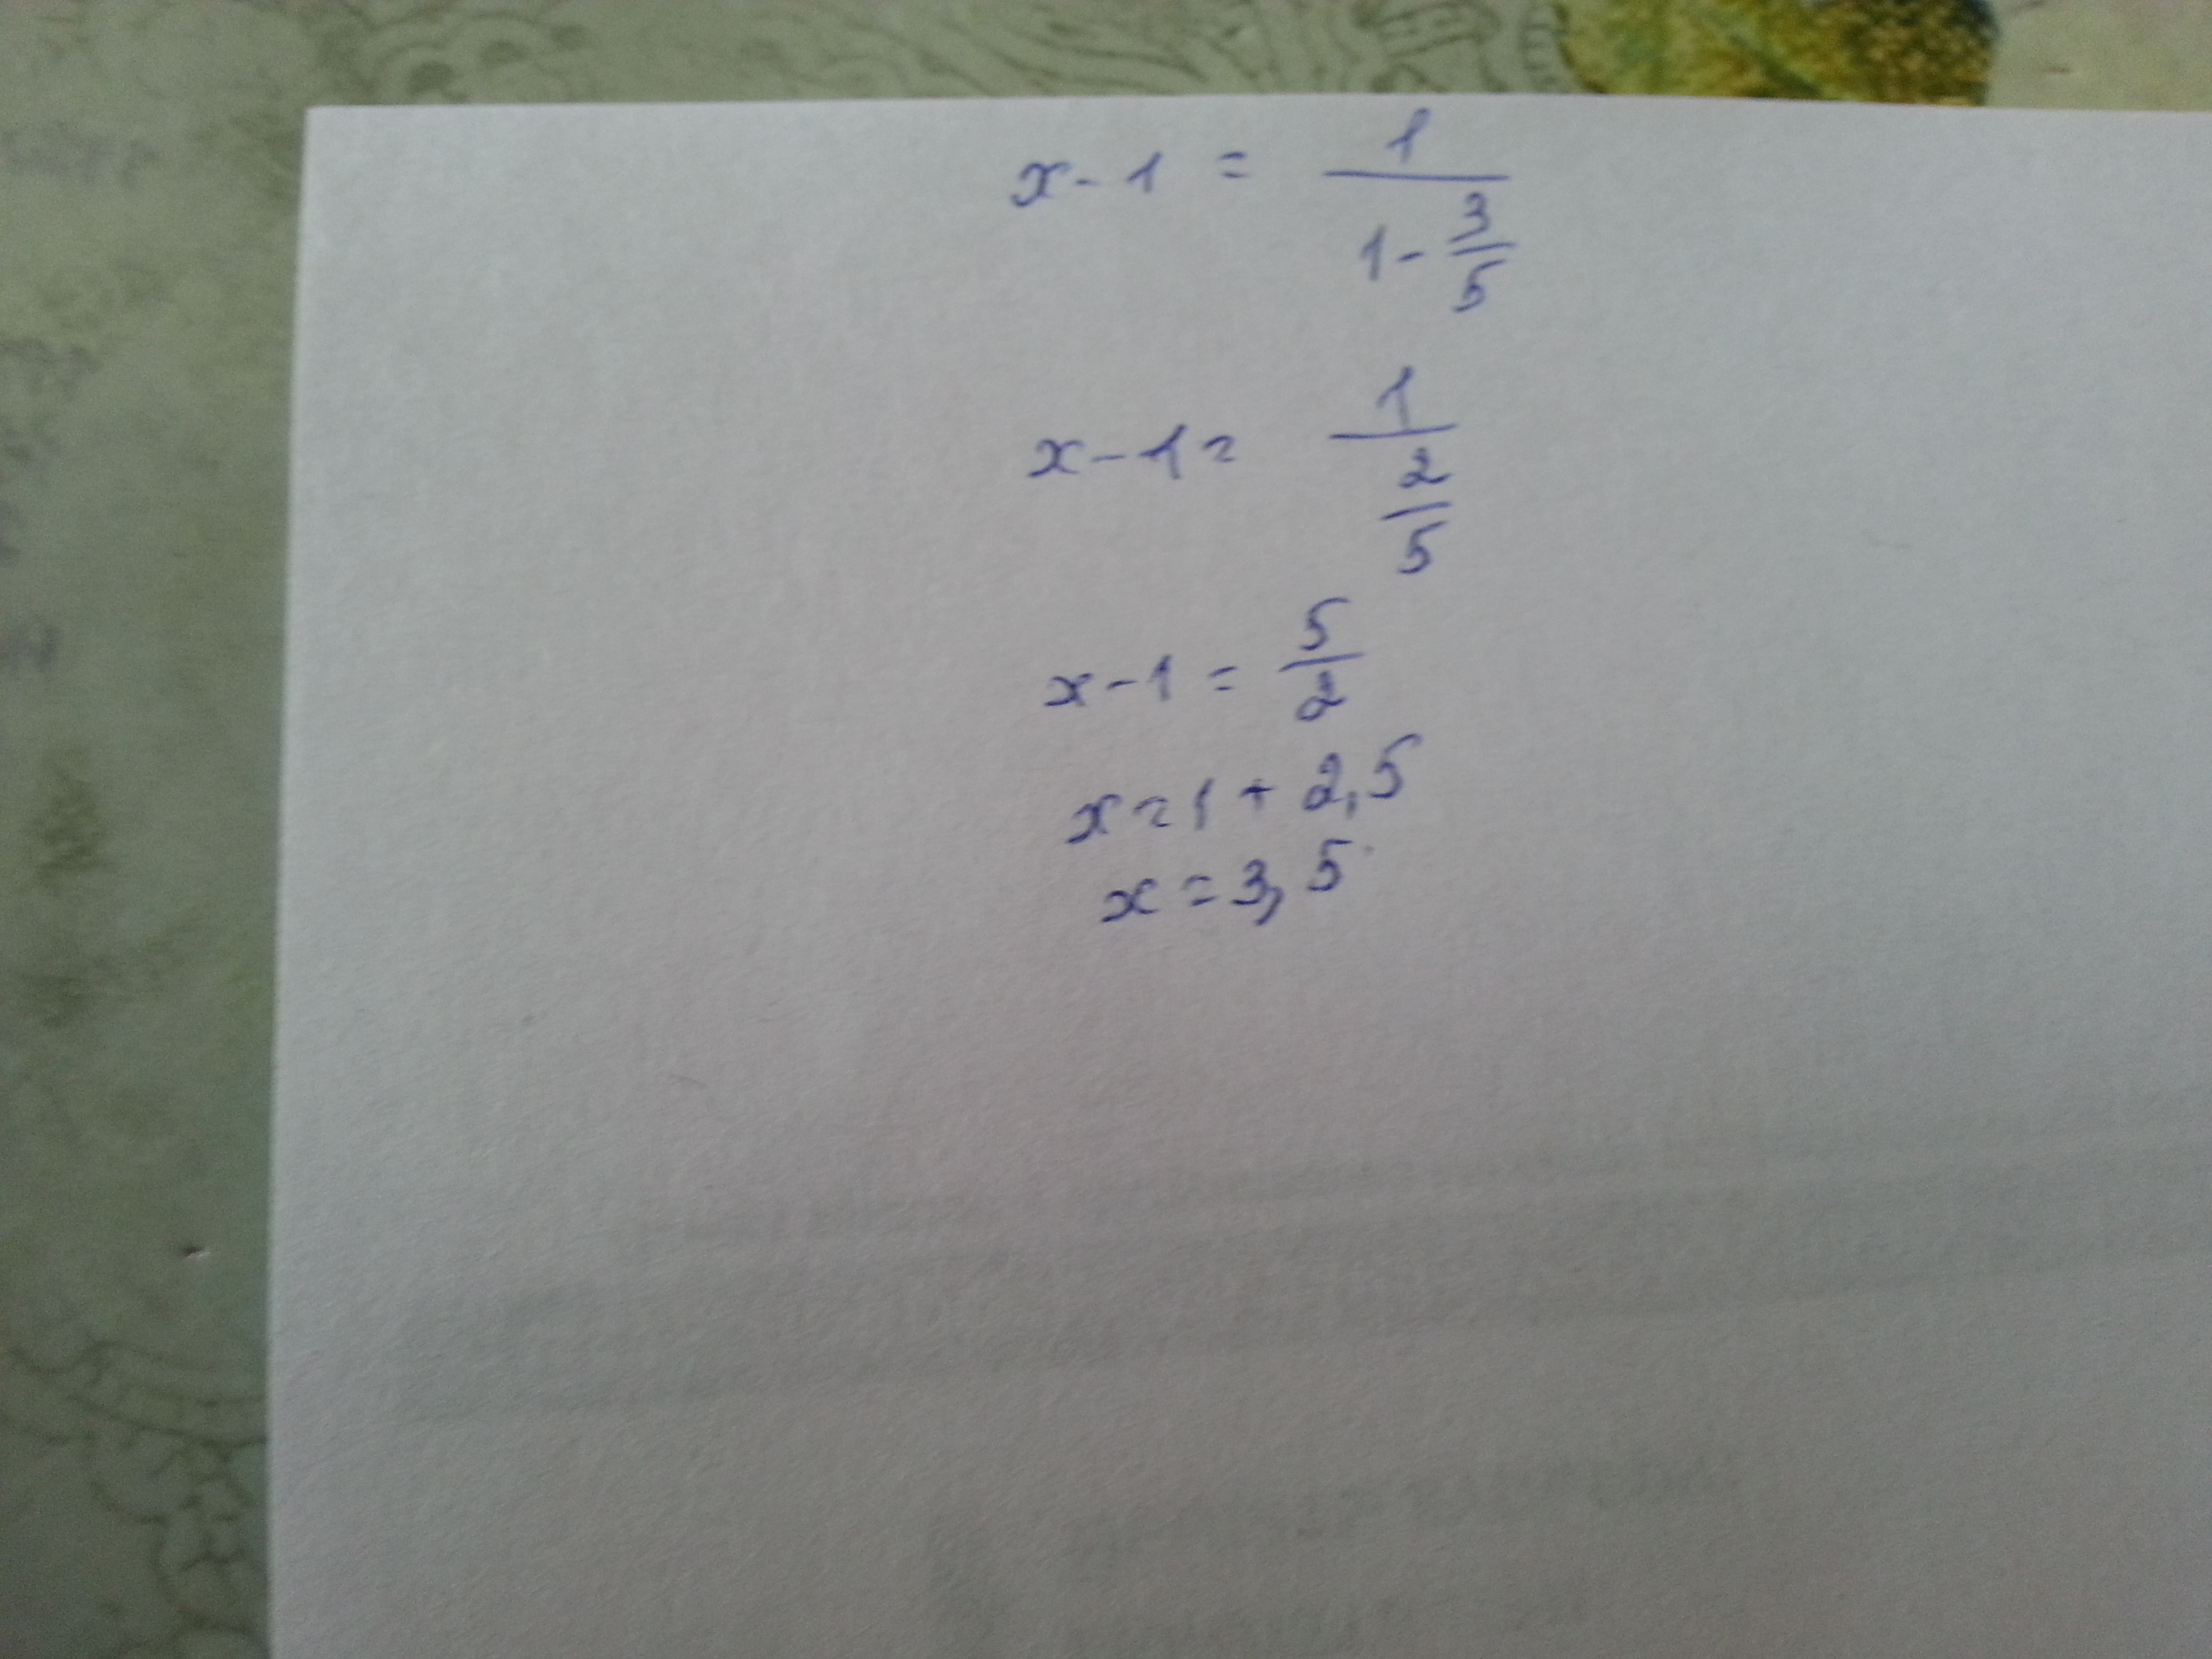 x - 1 = 1/(1 - 3/5)
x - 1 = 1/(2/5)
x - 1 = 5/2
x = 1 + 2,5
x = 3,5